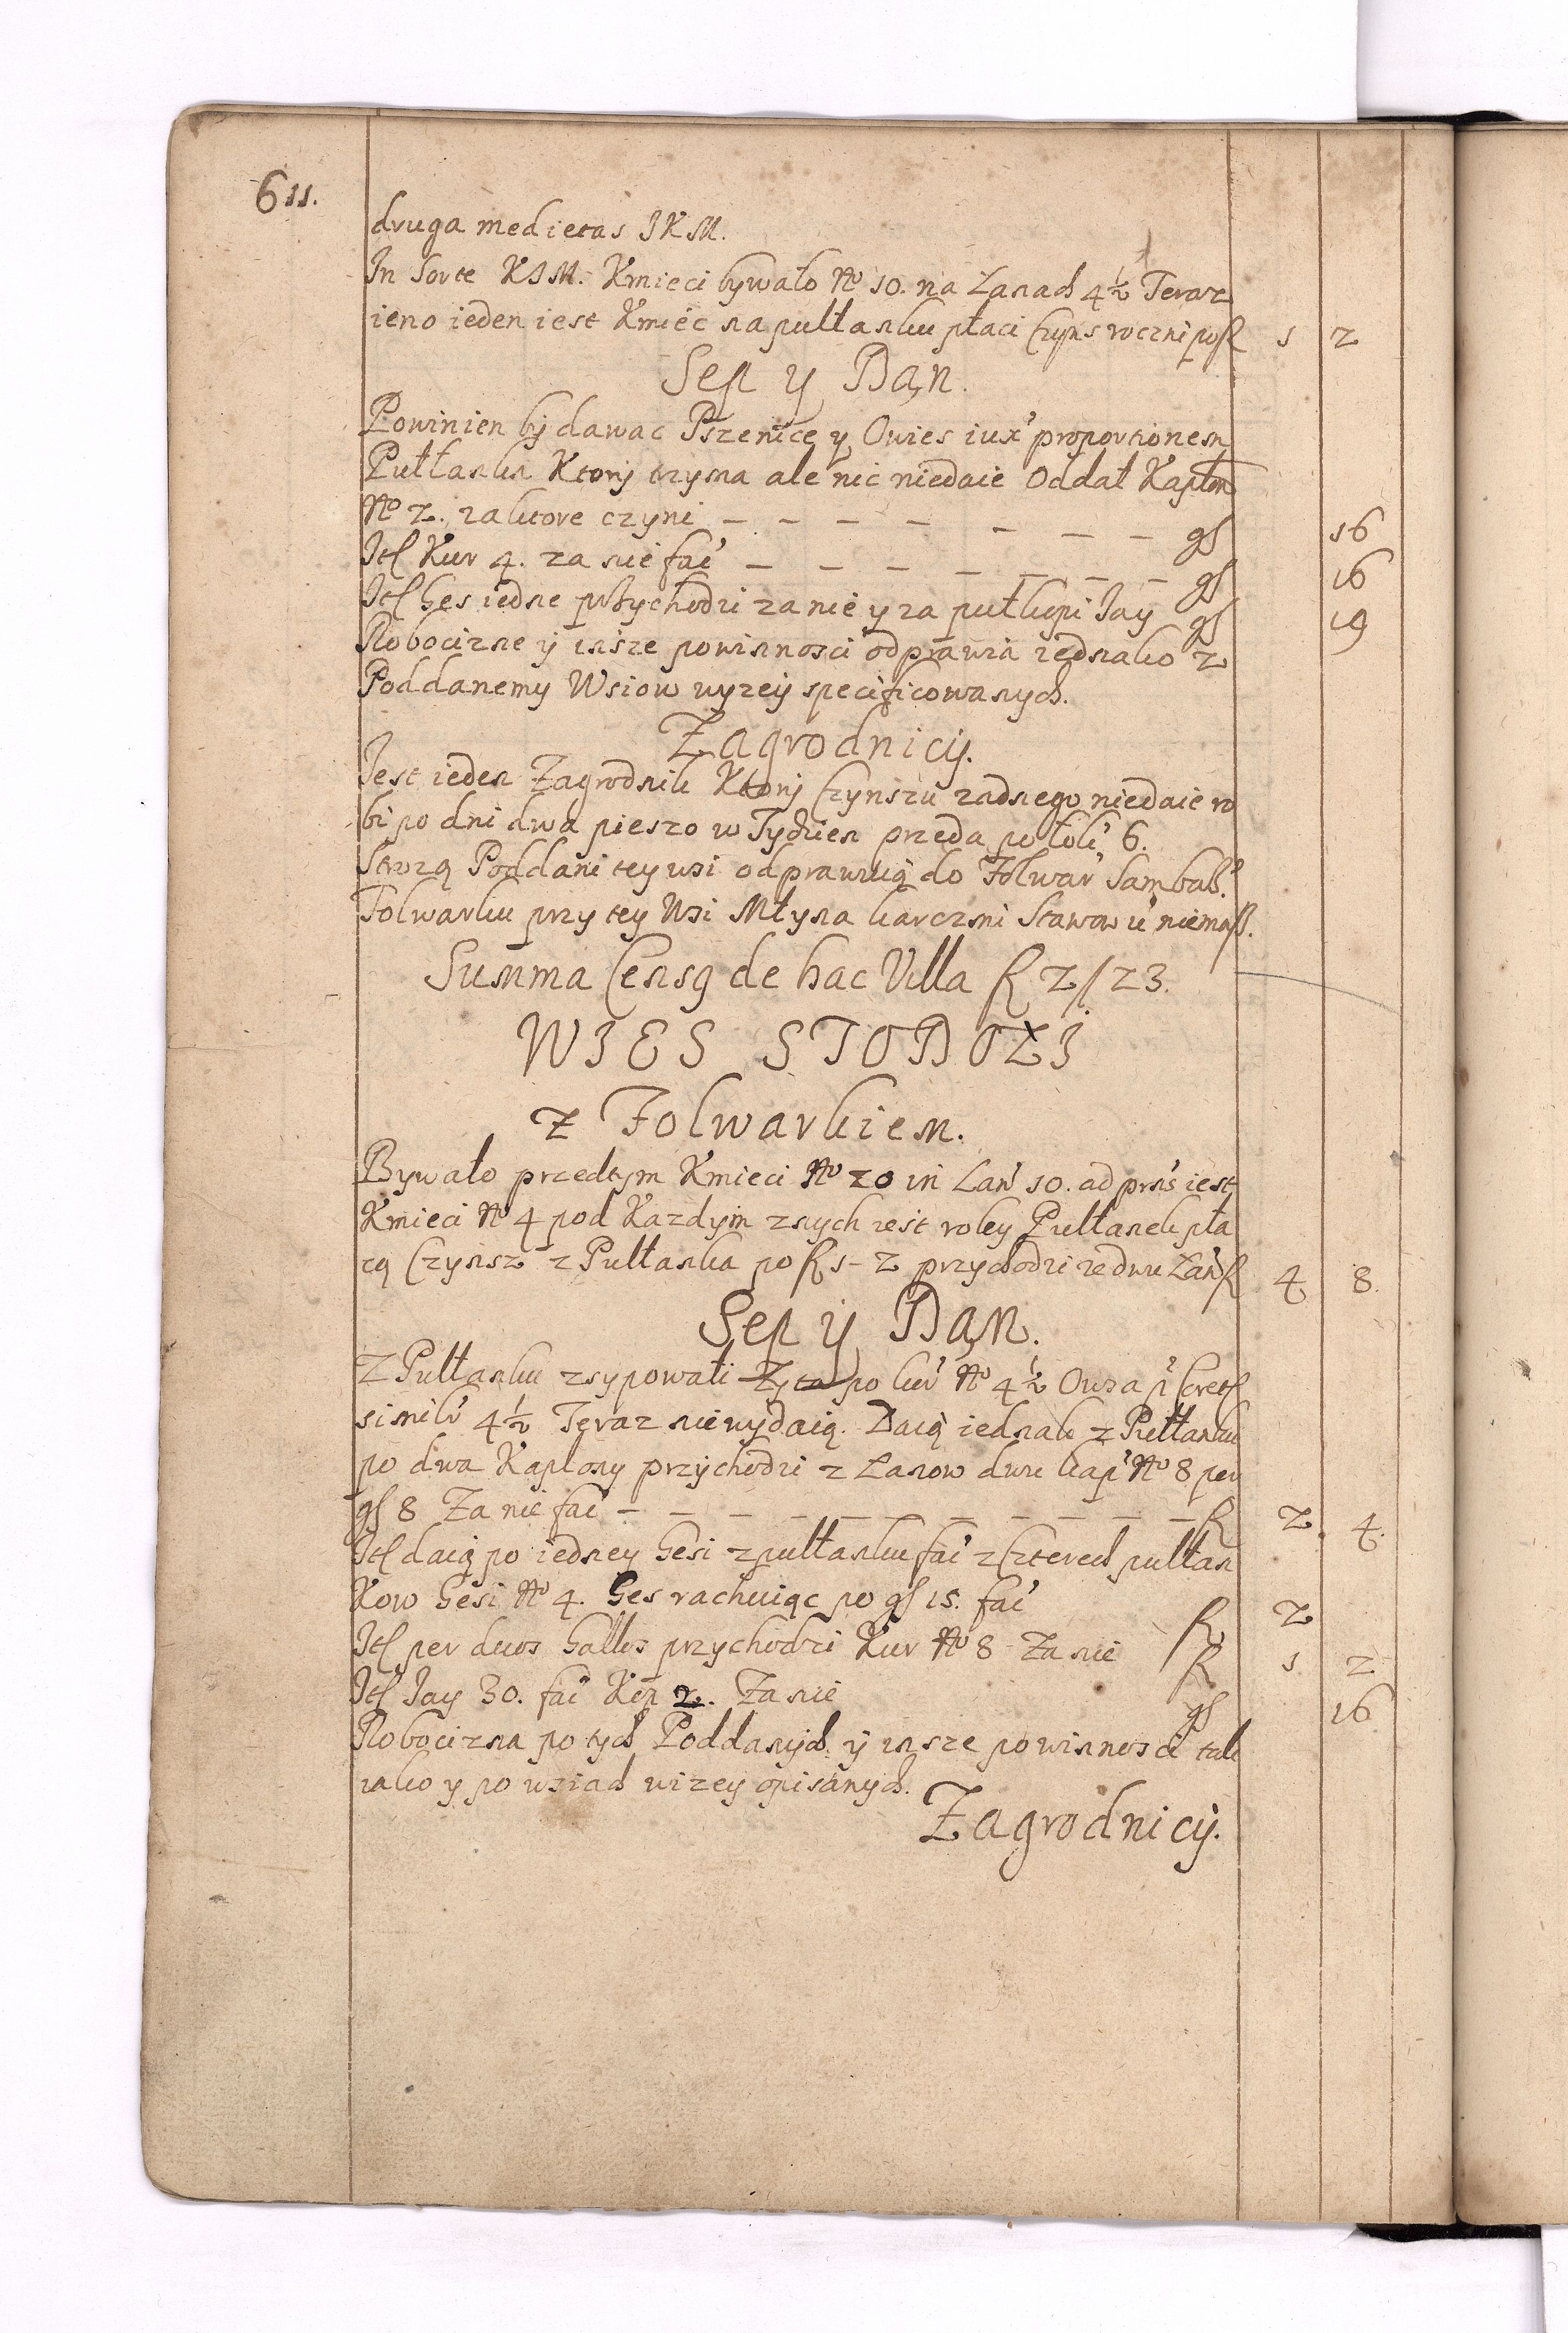 611.
druga medietas JKM.
In Sorte KJM. Kmieci bywało No 10. na Łanach 4½ Teraz
ieno ieden iest Kmiec na pułłanku płaci Czyns roczni po fl 1 2
Sep y Dan.
Powinien by dawac Pszenice y Owies iux' proportionem
Pułłanku Ktory trzyma ale nic niedaie Oddał Kapłon
No 2. za ktore czyni – – – – – – – gs 16
Itl Kur 4. za nie fac' – – – – – – – gs 16
Itl Ges iedne przychodzi za nie y za puł kopi Jay gs 19
Robocizne ÿ insze powinnosci odprawia iednako z
Poddanemy Wsiow wyzeÿ specificowanych.
Zagrodnicÿ.
Jest ieden Zagrodnik Ktory Czynszu zadnego niedaie ro
bi po dni dwa pieszo w Tydzien przeda po łok' 6.
Strozą Poddani tey wsi odprawuią do Folwar' Sambok'
Folwarku przy tey Wsi Młyna karczmi Stawow u niemasz.
Summa Censq de hac Villa fl 2/23.
WIES STOBOZI
z Folwarkiem.
Bywało przedtym Kmieci No 20 in Łan' 10. ad prns' iest
Kmieci No 4 pod Kazdym znych iest roley Pułłanek pła
cą Czynsz z Pułłanka po fl 1 - 2 przychodzi ze dwu Łan' fl 4 8.
Sep ÿ Dan.
Z Pułłanku zsypowali Zyta po kor' No 4½ Owsa p' Cretl
simili' 4½ Teraz nie wydaią. Daią iednak z Pułłanku
po dwa Kapłony przychodzi z Łanow dwu kap' No 8 per
gs 8 Za nie fac' – – – – – – – – – – fl 2. 4.
Itl daią po iedney Gesi z pułłanku fac' z Czterech pułłan
Kow Gesi No 4. Ges rachuiąc po gs 15. fac' fl 2
Itl per duos Gallos przychodzi Kur No 8 Za nie fl 1 2
Itl Jay 30. fac' Kop 2. Za nie gs 16
Robocizna po tych Poddanych ÿ insze powinnosci tak
iako y po wsiach wizey opisanych.
Zagrodnicÿ.